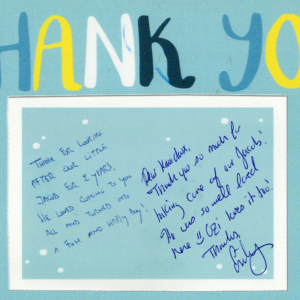 THANK YO
THANK FOR LOOKING
AFTER OUR LITTLE
JACOB FOR 2 YEARS,
WE LOVED COMING TO YOU
ALL AND TURNED INTO
A FUN AND HAPPY BOY!
Thank you so much for
taking care of our Jacob!
He was so well loved
here !! Ozi loved it too!
Thanks,
Emily